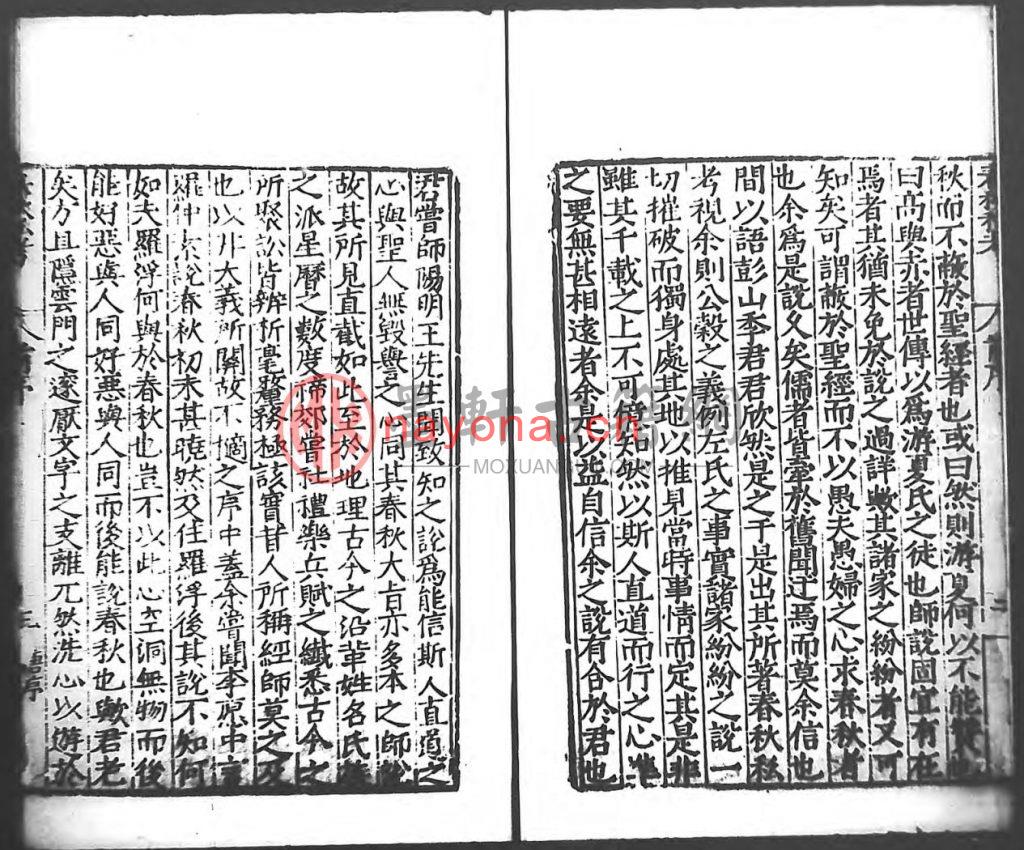 秋而不蔽於聖經者也或曰然則游夏何以不能贊也
曰高與赤者世傳以爲游夏氏之徒也師說固宜有在
焉者其猶未免於說之過詳歟其諸家之紛紛者又可
知矣可謂蔽於聖經而不以愚夫愚婦之心求春秋者
也余爲是說久矣儒者皆牽於舊聞迂焉而莫余信也
間以語彭山季君君欣然是之于是出其所著春秋私
考視余則公穀之義例左氏之事實諸家紛紛之說一
切摧破而獨身處其地以推見當時事情而定其是非
雖其千載之上不可億知然以斯人直道而行之心準
之要無甚相遠者余是以益自信余之說有合於君也
君嘗師陽明王先生聞致知之說爲能信斯人直道之
心與聖人無毀譽之心同其春秋大旨亦多本之師說
故其所見直截如此至於地理古今之沿革姓名氏族
之派星曆之數度禘郊嘗社禮樂兵賦之纖悉古今之
所聚訟皆辨析毫釐務極該實昔人所稱經師莫之及
也以非大義所關故不摘之序中蓋余嘗聞李愿中言
羅仲素說春秋初未甚曉然及住羅浮後其說不知何
如夫羅浮何與於春秋也豈不以此心空洞無物而後
能好惡與人同好惡與人同而後能說春秋也歟君老
矣方且隱雲門之邃厭文字之支離兀然洗心以遊於
三
唐序
墨軒古籍網
nayona.cn